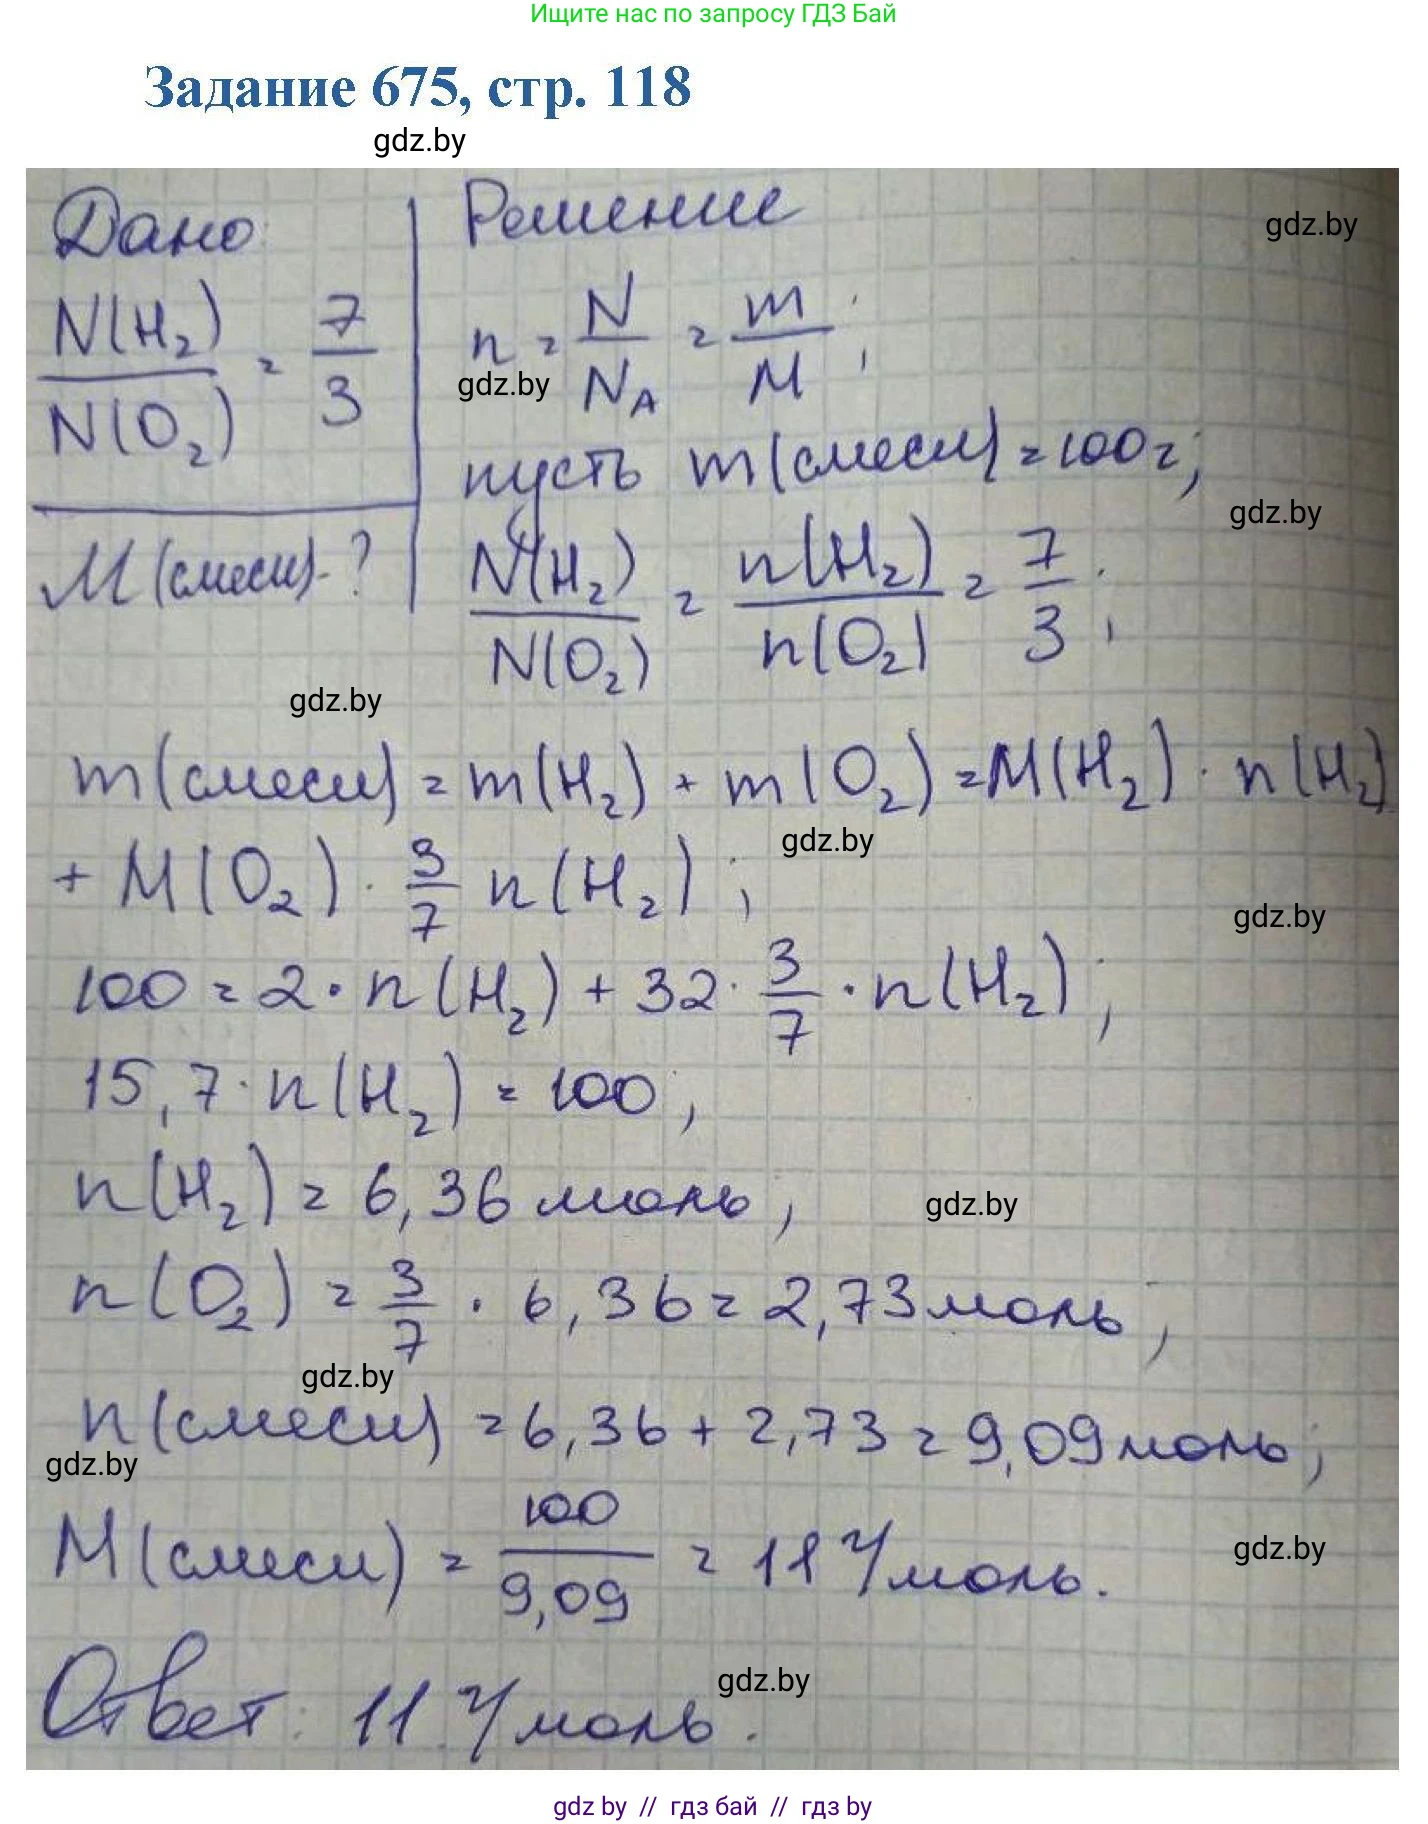 Ищите нас по запросу ГДЗ Бай
Задание 675, стр. 118
gdz.by
Дано:
N(H₂)/N(O₂) = 7/3
M(смеси) - ?
Решение
gdz.by
n = N/Nₐ = m/M ;
gdz.by
пусть m(смеси) = 100г;
gdz.by
N(H₂)/N(O₂) = n(H₂)/n(O₂) = 7/3 ;
gdz.by
m(смеси) = m(H₂) + m(O₂) = M(H₂) · n(H₂)
gdz.by
+ M(O₂) · 3/7 n(H₂) ;
gdz.by
100 = 2 · n(H₂) + 32 · 3/7 · n(H₂) ;
15,7 · n(H₂) = 100 ;
n(H₂) = 6,36 моль ;
gdz.by
n(O₂) = 3/7 · 6,36 = 2,73 моль ;
gdz.by
n(смеси) = 6,36 + 2,73 = 9,09 моль ;
gdz.by
M(смеси) = 100/9,09 = 11 г/моль.
gdz.by
Ответ: 11 г/моль.
gdz.by
gdz by // гдз бай // гдз by